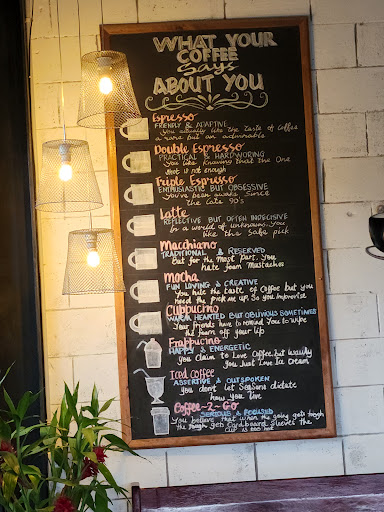 WHAT YOUR
COFFEE
Says
ABOUT YOU
Espresso
FRIENDLY & ADAPTIVE
You actually like the taste of coffee
a rare but an admirable
Double Espresso
PRACTICAL & HARDWORING
You like knowing that the One
shot is not enough
Triple Espresso
ENTHUSIASTIC BUT OBSESSIVE
You've been awake since
the late 90's
Latte
REFLECTIVE BUT OFTEN INDECISIVE
In a world of unknowns you
like the safe pick
Macchiano
TRADITIONAL & RESERVED
But for the Most part. You
hate foam Mustaches
Mocha
FUN LOVING & CREATIVE
You hate the taste of Coffee but you
need the pick me up. So you improvise
Cuppucino
WARM HEARTED BUT OBLIVIOUS SOMETIMES
Your friends have to remind You to wipe
the foam off your lip
Frappucino
HAPPY & ENERGETIC
You claim to Love Coffee. but
You Just Love Ice Cream
Iced coffee
ASSERTIVE & OUTSPOKEN
You don't let Seasons dictate
how you live
Coffee-2-Go
SERIOUS & FOCUSED
You believe that when the going gets tough
the tough get Cardboard sleeves the
cup is too hot